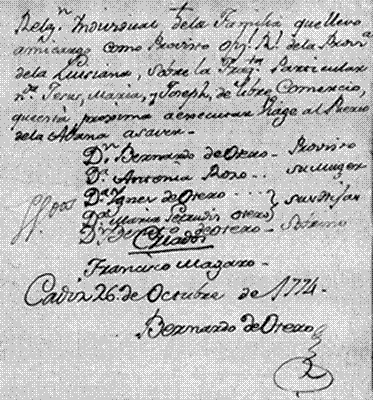 Relqⁿ Indiviidual de la Familia que llevo
a mi cargo como Proviso ofiz. Rl. de la Provª
de la Luisiana, sobre la Fragta Particular
nª Jesus, Maria, y Joseph, de libre Comercio,
que está proxima a executar Viage al Puerto
de la Abana a saver.
Dn. Bernardo de Otero - Proviso
Dª. Antonia Pozo... su Muger
Dª. Ygnes de Otero ... } sus Hijas
Dª. Maria de Otero
Dn. de Otero - Sobrino
Criados
Francisco Mazaro -
Cadiz 26 de Octubre de 1774 -
Bernardo de Otero